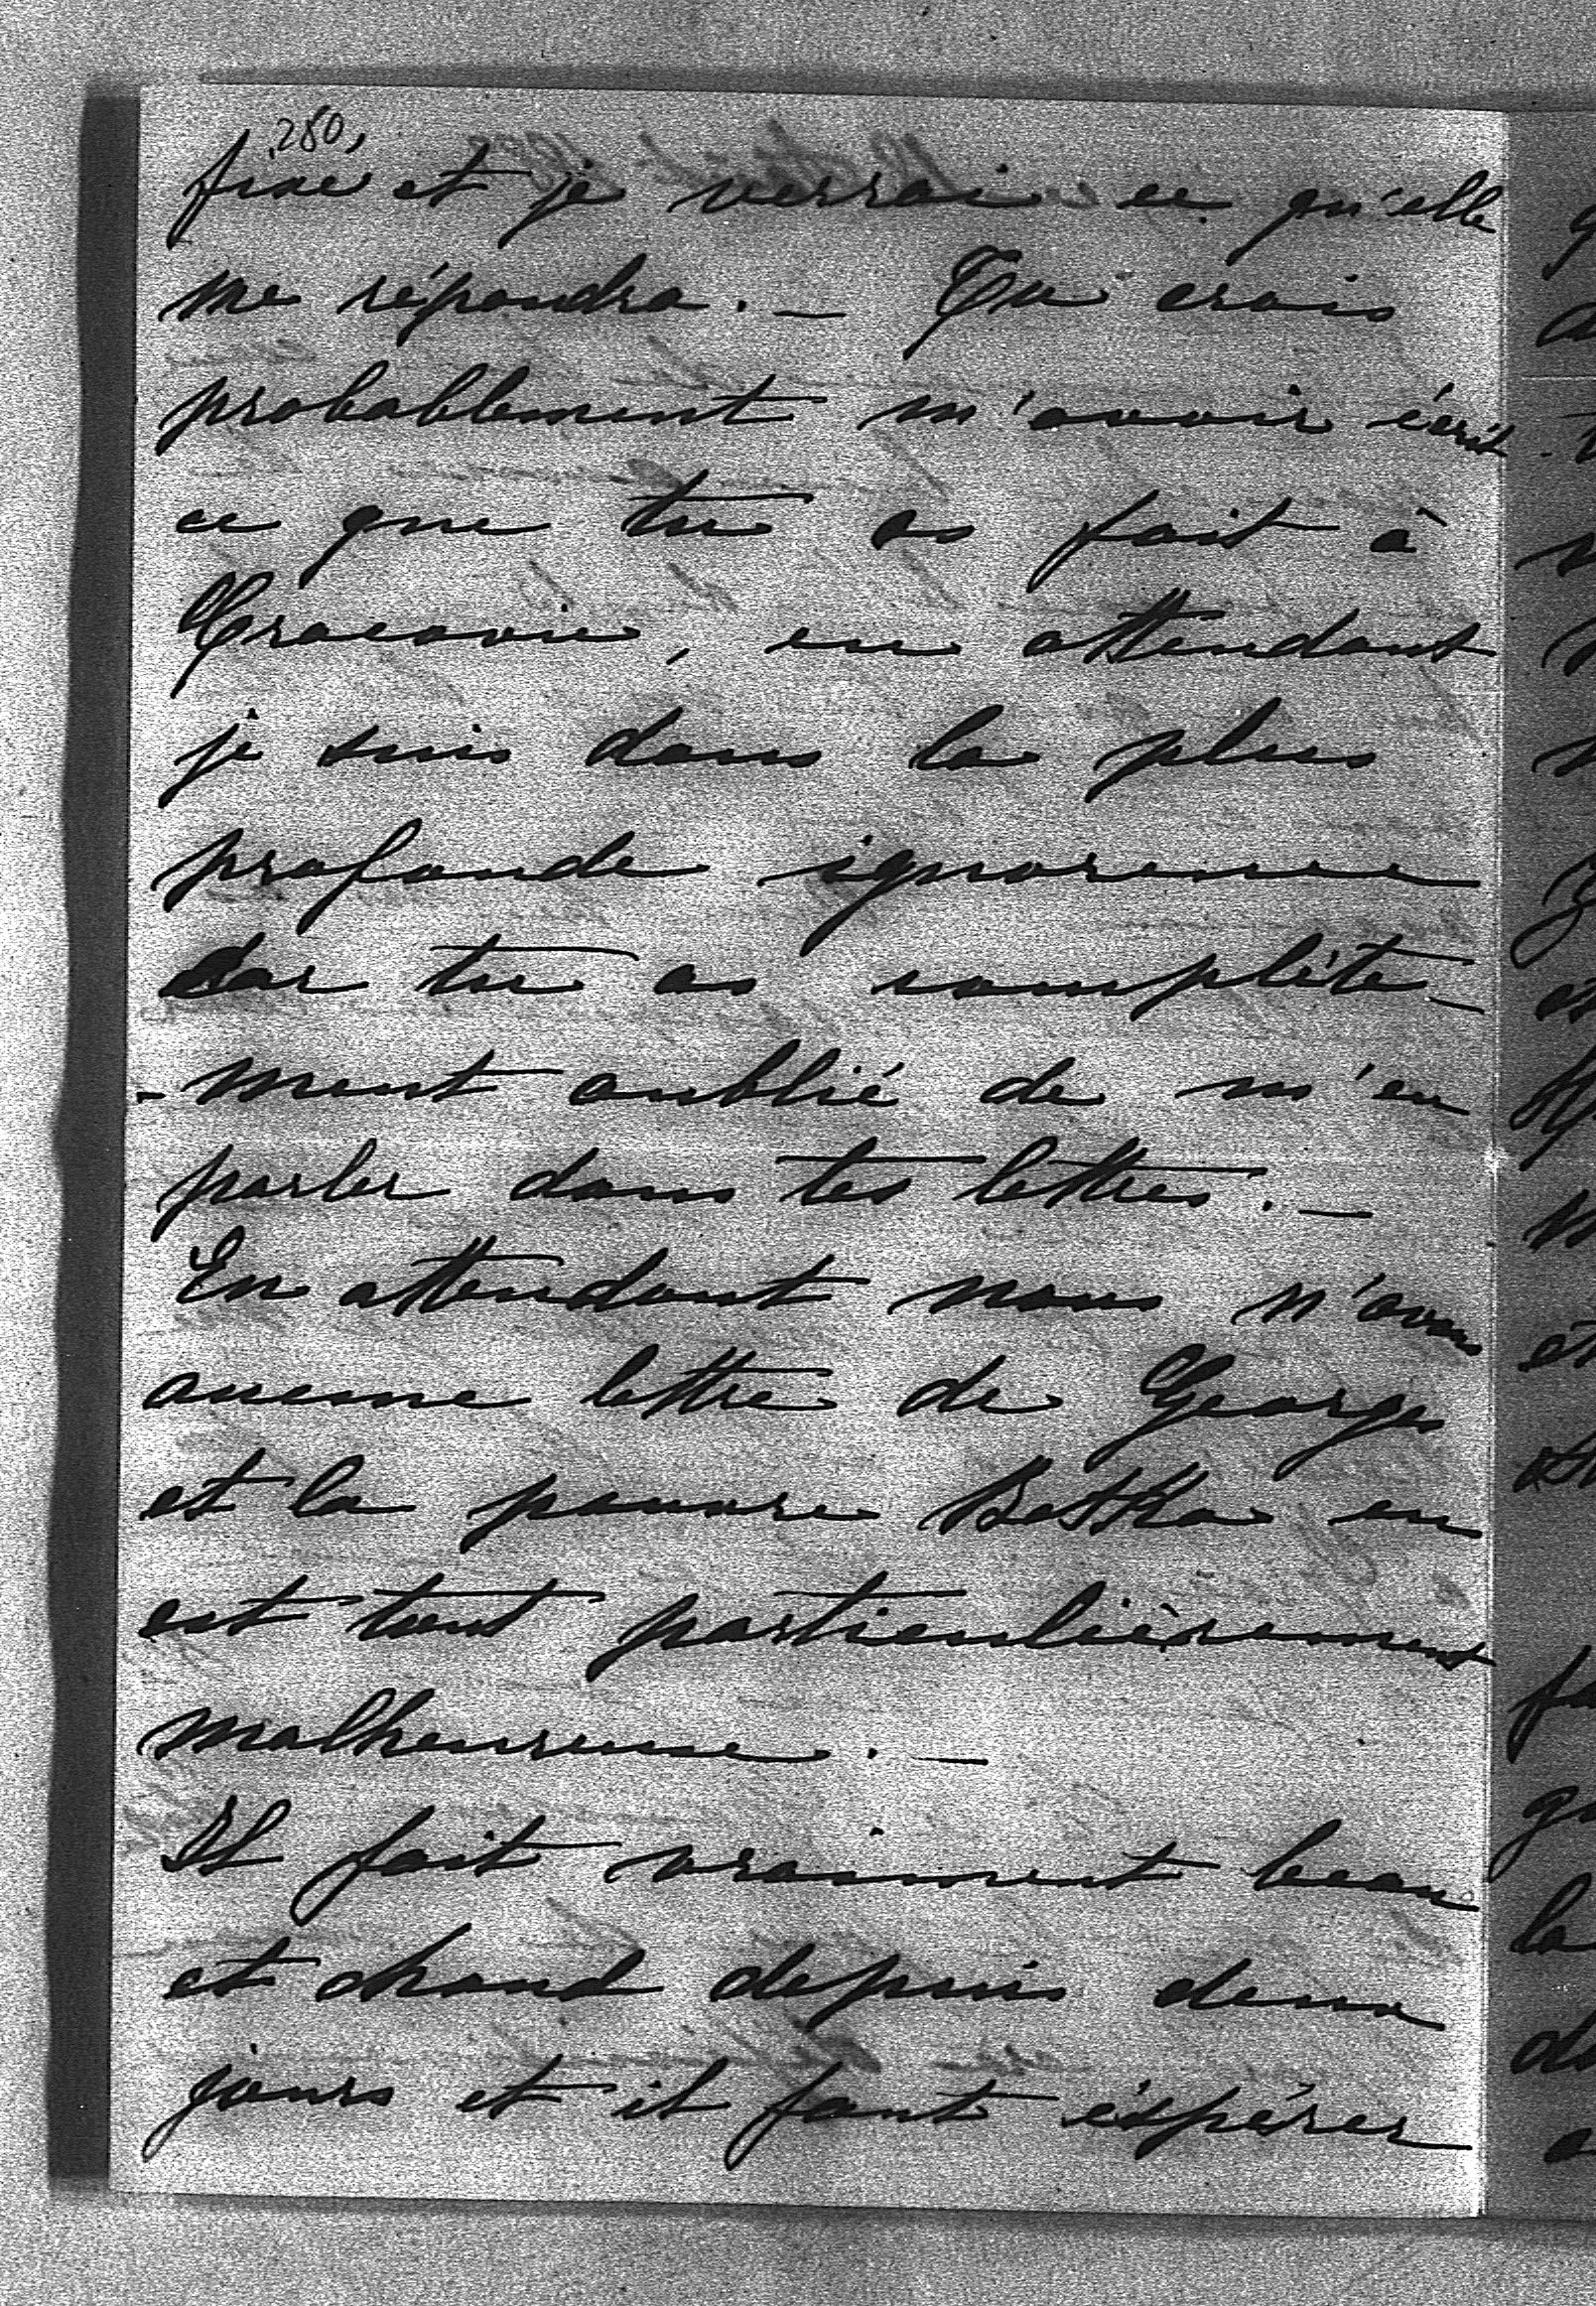 280,
fixe et je verrai ce qu'elle
me répondra. — Tu crois
probablement m'avoir écrit
ce que tu as fait à
Cracovie, en attendant
je suis dans la plus
profonde ignorence
car tu as complète-
-ment oublié de m'en
parler dans tes lettres. —
En attendant nous n'avons
aucune lettre de Georges
et la pauvre Betka en
est tout particulièrement
malheureuse. —
Il fait vraiment beau
et chaud depuis deux
jours et il faut éspérer